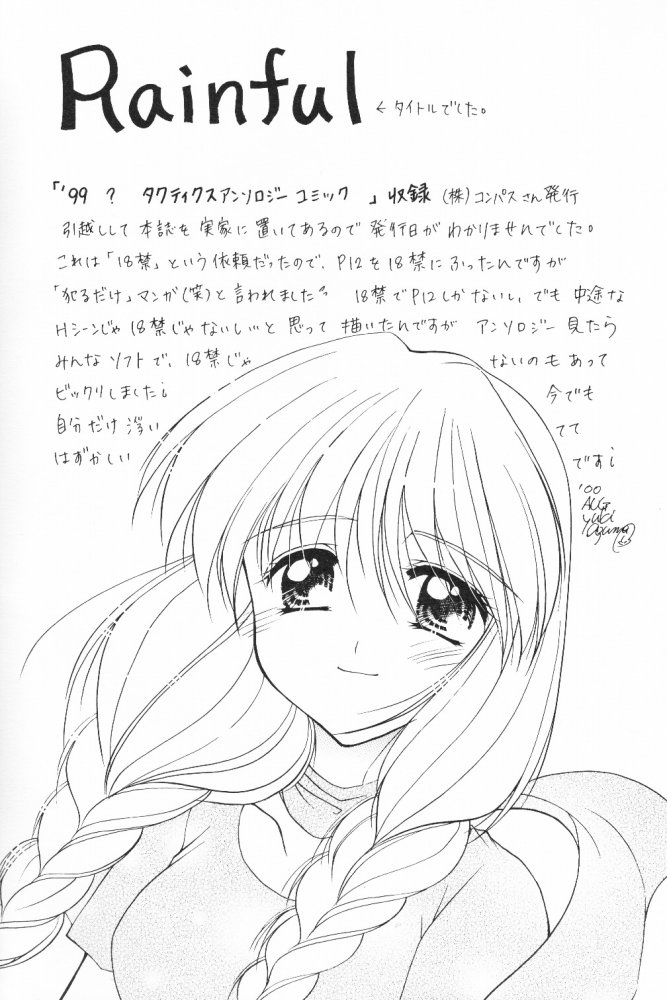 Rainful ←タイトルでした。
「'99 ? タクティクスアンソロジーコミック 」収録 (株)コンパスさん発行
引越しして本誌を実家に置いてあるので発行日がわかりませんでした。
これは「18禁」という依頼だったので、P12を18禁にふったんですが
「犯るだけ」マンガ(笑)と言われました 18禁でP12しかないし、でも中途な
Hシーンじゃ18禁じゃないし…と思って描いたんですが アンソロジー見たら
みんなソフトで、18禁じゃ ないのもあって
ビックリしました¡ 今でも
自分だけ浮い てて
はずかしい です¡
'00
AUG
yuki